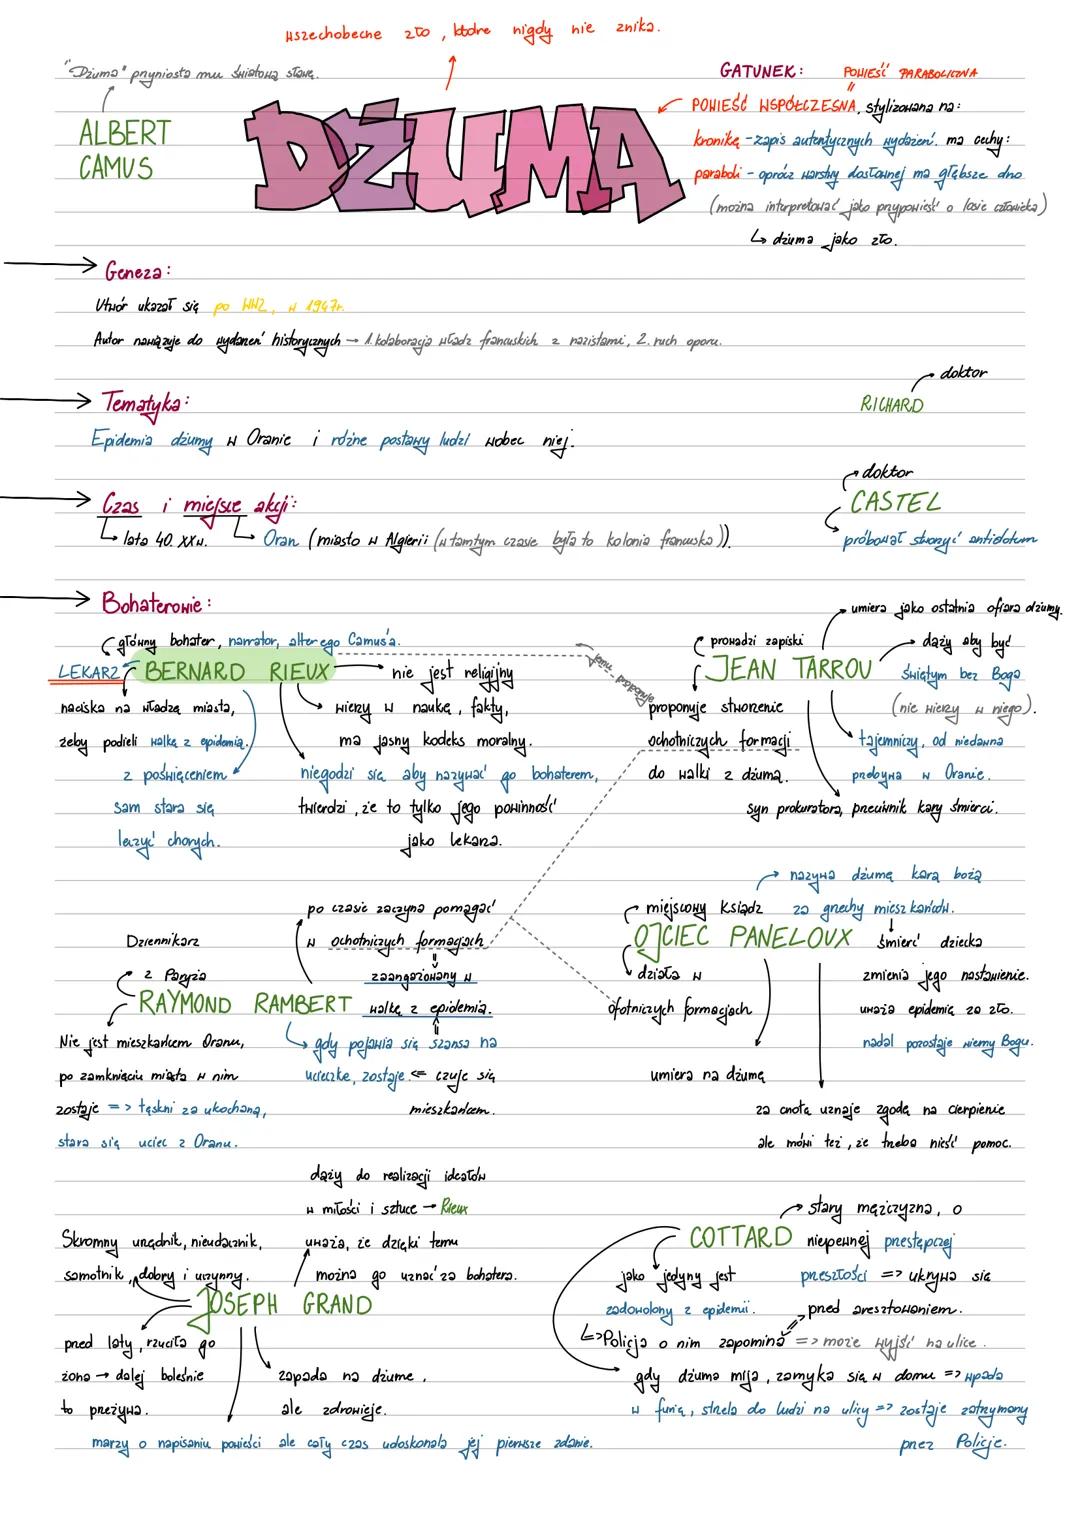 wszechobecne zło, które nigdy nie znika.
"Dżuma" przyniosła mu światową sławę.
ALBERT
CAMUS
DŻUMA
GATUNEK: POWIEŚĆ PARABOLICZNA
POWIEŚĆ WSPÓŁCZESNA, stylizowana na:
kronikę - zapis autentycznych wydarzeń. ma cechy:
paraboli - oprócz warstwy dosłownej ma głębsze dno
(można interpretować jako przypowieść o losie człowieka)
↳ dżuma jako zło.
Geneza:
Utwór ukazał się po WW2, w 1947r.
Autor nawiązuje do wydarzeń historycznych → 1. kolaboracja władz francuskich z nazistami, 2. ruch oporu.
doktor
RICHARD
Tematyka:
Epidemia dżumy w Oranie i różne postawy ludzi wobec niej.
doktor
CASTEL
próbował stworzyć antidotum
Czas i miejsce akcji:
lata 40. XXw.
Oran (miasto w Algierii (w tamtym czasie była to kolonia francuska)).
Bohaterowie:
główny bohater, narrator, alter ego Camus'a.
LEKARZ BERNARD RIEUX
naciska na władzę miasta,
żeby podjęli walkę z epidemią.
z poświęceniem
sam stara się
leczyć chorych.
nie jest religijny
wierzy w naukę, fakty,
ma jasny kodeks moralny.
niegodzi się aby nazywać go bohaterem,
twierdzi, że to tylko jego powinność
jako lekarza.
jemu proponuje
umiera jako ostatnia ofiara dżumy.
prowadzi zapiski
JEAN TARROU
dąży aby być
świętym bez Boga
(nie wierzy w niego).
proponuje stworzenie
ochotniczych formacji
do walki z dżumą.
tajemniczy, od niedawna
przebywa w Oranie.
syn prokuratora, przeciwnik kary śmierci.
po czasie zaczyna pomagać
w ochotniczych formacjach
zaangażowany w
walkę z epidemią.
Dziennikarz
z Paryża
RAYMOND RAMBERT
Nie jest mieszkańcem Oranu,
po zamknięciu miasta w nim
zostaje => tęskni za ukochaną,
stara się uciec z Oranu.
gdy pojawia się szansa na
ucieczkę, zostaje <= czuje się
mieszkańcem.
nazywa dżumę karą bożą
za grzechy mieszkańców.
miejscowy ksiądz
OJCIEC PANELOUX
działa w
ofotniczych formacjach
śmierć dziecka
zmienia jego nastawienie.
uważa epidemię za zło.
nadal pozostaje wierny Bogu.
umiera na dżumę
za cnotę uznaje zgodę na cierpienie
ale mówi też, że trzeba nieść pomoc.
dąży do realizacji ideałów
w miłości i sztuce → Rieux
uważa, że dzięki temu
można go uznać za bohatera.
Skromny urzędnik, nieudacznik,
samotnik, dobry i uczynny.
JOSEPH GRAND
przed laty, rzuciła go
żona → dalej boleśnie
to przeżywa.
zapada na dżumę,
ale zdrowieje.
marzy o napisaniu powieści ale cały czas udoskonala jej pierwsze zdanie.
COTTARD
stary mężczyzna, o
niepewnej przestępczej
przeszłości => ukrywa się
przed aresztowaniem.
jako jedyny jest
zadowolony z epidemii.
↳>Policja o nim zapomina => może wyjść na ulice.
gdy dżuma mija, zamyka się w domu => wpada
w furię, strzela do ludzi na ulicy => zostaje zatrzymany
przez Policje.